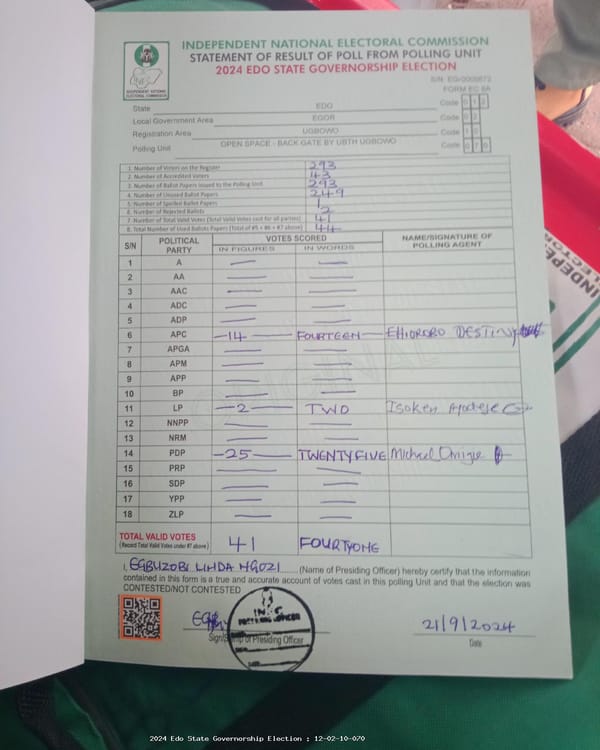 INDEPENDENT NATIONAL ELECTORAL COMMISSION
STATEMENT OF RESULT OF POLL FROM POLLING UNIT
2024 EDO STATE GOVERNORSHIP ELECTION
FORM EC 8A
State EDO Code 012
Local Government Area EGOR Code 02
Registration Area UGBOWO Code 10
Polling Unit OPEN SPACE - BACK GATE BY UBTH UGBOWO Code 070
1. Number of Voters on the Register 293
2. Number of Accredited Voters 43
3. Number of Ballot Papers Issued to the Polling Unit 293
4. Number of Unused Ballot Papers 249
5. Number of Spoiled Ballot Papers 1
6. Number of Rejected Ballots 2
7. Number of Total Valid Votes (Total Valid Votes cast for all parties) 41
8. Total Number of Used Ballots Papers (Total of #5 + #6 + #7 above) 44
S/N POLITICAL PARTY VOTES SCORED NAME/SIGNATURE OF POLLING AGENT
IN FIGURES IN WORDS
1 A
2 AA
3 AAC
4 ADC
5 ADP
6 APC 14 FOURTEEN EHIORORO DESTINY
7 APGA
8 APM
9 APP
10 BP
11 LP 2 TWO Isoken
12 NNPP
13 NRM
14 PDP 25 TWENTYFIVE Michael
15 PRP
16 SDP
17 YPP
18 ZLP
TOTAL VALID VOTES 41 FOURTYONE
(Record Total Valid Votes under #7 above)
I, EGBUZOBI LINDA NGOZI (Name of Presiding Officer) hereby certify that the information
contained in this form is a true and accurate account of votes cast in this polling Unit and that the election was
CONTESTED/NOT CONTESTED
INEC
PRESIDING OFFICER
21/9/2024
of Presiding Officer
Date
2024 Edo State Governorship Election : 12-02-10-070